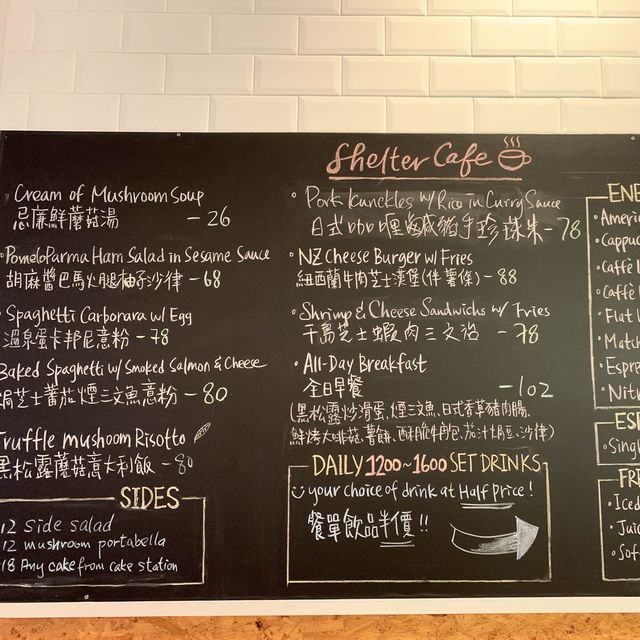 Shelter Cafe
Cream of Mushroom Soup
忌廉鮮蘑菇湯 -26
PomeloParma Ham Salad in Sesame Sauce
胡麻醬巴馬火腿柚子沙律 -68
Spaghetti Carborara w/ Egg
溫泉蛋卡邦尼意粉 -78
Baked Spaghetti w/ Smoked Salmon & Cheese
焗芝士蕃茄煙三文魚意粉 -80
Truffle mushoom Risotto
黑松露蘑菇意大利飯 -80
SIDES
12 side salad
12 mushroom portabella
18 Any cake from cake station
Pork kunckles w/ Rice in Curry Sauce
日式咖喱鹹豬手珍珠米 -78
NZ Cheese Burger w/ Fries
紐西蘭牛肉芝士漢堡(伴薯條) - 88
Shrimp & Cheese Sandwichs w/ Fries
千島芝士蝦肉三文治 - 78
All-Day Breakfast
全日早餐 -102
(黑松露炒滑蛋、煙三文魚、日式香草豬肉腸、
鮮烤大啡菇、薯餅、酥脆牛角包、茄汁焗豆、沙律)
DAILY 1200~1600 SET DRINKS
your choice of drink at Half Price!
餐單飲品半價!!
ENE
Americ
Cappuc
Caffè l
Caffè
Flat
Match
Espre
Nitr
ESP
Singl
FR
Iced
Juic
Sof